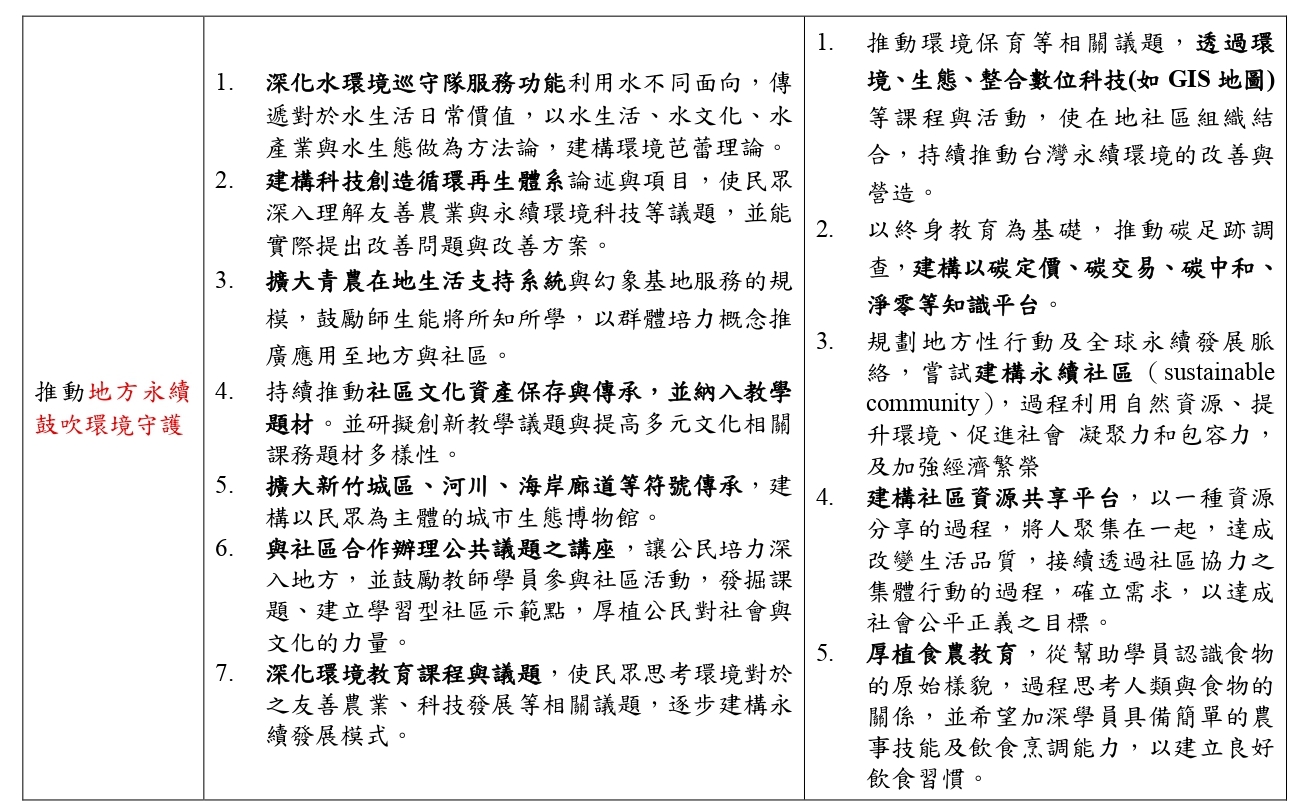 推動地方永續
鼓吹環境守護
1. 深化水環境巡守隊服務功能利用水不同面向，傳
遞對於水生活日常價值，以水生活、水文化、水
產業與水生態做為方法論，建構環境芭蕾理論。
2. 建構科技創造循環再生體系論述與項目，使民眾
深入理解友善農業與永續環境科技等議題，並能
實際提出改善問題與改善方案。
3. 擴大青農在地生活支持系統與幻象基地服務的規
模，鼓勵師生能將所知所學，以群體培力概念推
廣應用至地方與社區。
4. 持續推動社區文化資產保存與傳承，並納入教學
題材。並研擬創新教學議題與提高多元文化相關
課務題材多樣性。
5. 擴大新竹城區、河川、海岸廊道等符號傳承，建
構以民眾為主體的城市生態博物館。
6. 與社區合作辦理公共議題之講座，讓公民培力深
入地方，並鼓勵教師學員參與社區活動，發掘課
題、建立學習型社區示範點，厚植公民對社會與
文化的力量。
7. 深化環境教育課程與議題，使民眾思考環境對於
之友善農業、科技發展等相關議題，逐步建構永
續發展模式。
1. 推動環境保育等相關議題，透過環
境、生態、整合數位科技(如 GIS 地圖)
等課程與活動，使在地社區組織結
合，持續推動台灣永續環境的改善與
營造。
2. 以終身教育為基礎，推動碳足跡調
查，建構以碳定價、碳交易、碳中和、
淨零等知識平台。
3. 規劃地方性行動及全球永續發展脈
絡，嘗試建構永續社區（sustainable
community），過程利用自然資源、提
升環境、促進社會 凝聚力和包容力，
及加強經濟繁榮
4. 建構社區資源共享平台，以一種資源
分享的過程，將人聚集在一起，達成
改變生活品質，接續透過社區協力之
集體行動的過程，確立需求，以達成
社會公平正義之目標。
5. 厚植食農教育，從幫助學員認識食物
的原始樣貌，過程思考人類與食物的
關係，並希望加深學員具備簡單的農
事技能及飲食烹調能力，以建立良好
飲食習慣。